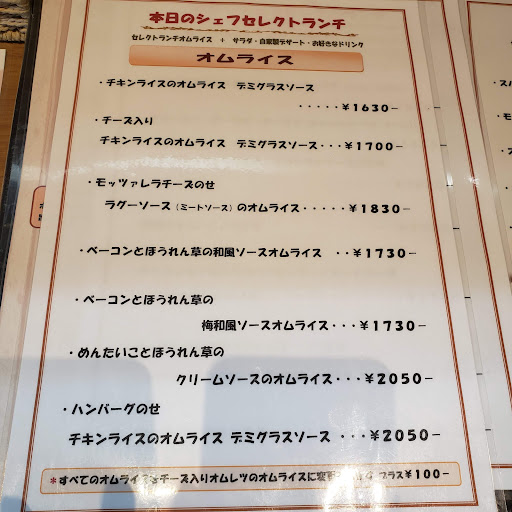 本日のシェフセレクトランチ
セレクトランチオムライス + サラダ・自家製デザート・お好きなドリンク
オムライス
・チキンライスのオムライス デミグラスソース
・・・・・¥1630−
・チーズ入り
チキンライスのオムライス デミグラスソース・・・¥1700−
・モッツァレラチーズのせ
ラグーソース(ミートソース)のオムライス・・・・・¥1830−
・ベーコンとほうれん草の和風ソースオムライス ・・¥1730−
・ベーコンとほうれん草の
梅和風ソースオムライス・・・¥1730−
・めんたいことほうれん草の
クリームソースのオムライス・・・¥2050−
・ハンバーグのせ
チキンライスのオムライス デミグラスソース ・・・¥2050−
*すべてのオムライスをチーズ入りオムレツのオムライスに プラス¥100−